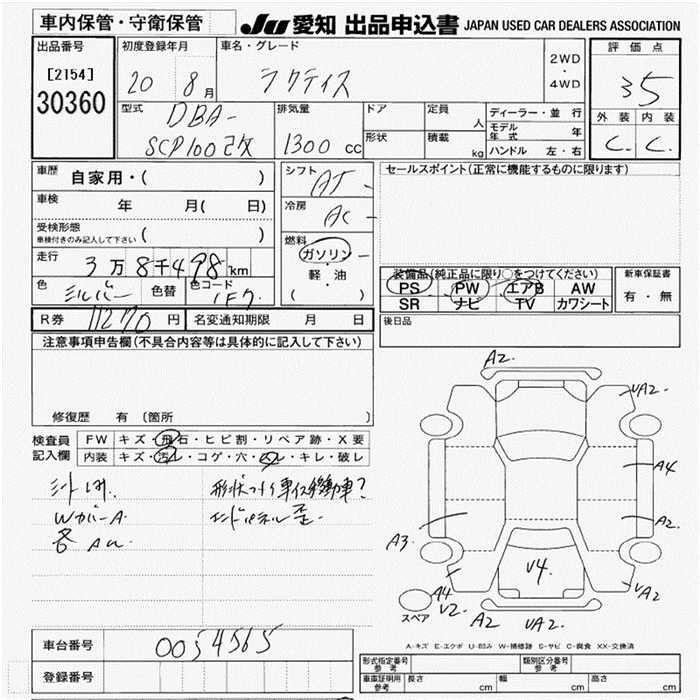 車内保管・守衛保管
JU 愛知 出品申込書 JAPAN USED CAR DEALERS ASSOCIATION
出品番号
[2154]
30360
初度登録年月
20 8月
車名・グレード
ラクティス
2WD
・
4WD
評価点
3.5
外装 内装
C. C.
型式
DBA-
SCP100改
排気量
1300 cc
ドア
定員
人
形状
積載
kg
ディーラー・並行
モデル年式 年
ハンドル 左・右
車歴
自家用・( )
車検
年 月( 日)
受検形態
車検付きのみ記入して下さい ( )
走行
3万8千498km
色
シルバー
色替
色コード
1F7
シフト
AT
冷房
AC
燃料
ガソリン・
軽・油
( )
セールスポイント(正常に機能するものに限ります)
装備品(純正品に限り○をつけてください)
PS PW エアB AW
SR ナビ TV カワシート
新車保証書
有・無
R券 11270 円
名変通知期限 月 日
後日品
注意事項申告欄(不具合内容等は具体的に記入して下さい)
修復歴 有 (箇所
検査員
記入欄
FW キズ・飛石・ヒビ割・リペア跡・X要
内装 キズ・汚レ・コゲ・穴・スレ・キレ・破レ
WカバーA
エンドパネル歪
A2.
A2.
A4
A2.
A3
V4.
A4
V2-
A2
VA2.
VA2
スペア
A-キズ E-エクボ U-凹み W-補修跡 S-サビ C-腐食 XX-交換済
車台番号
0054565
登録番号
形式指定番号
参考
類別区分番号
参考
車庫証明用
参考
長さ cm
幅 cm
高さ cm